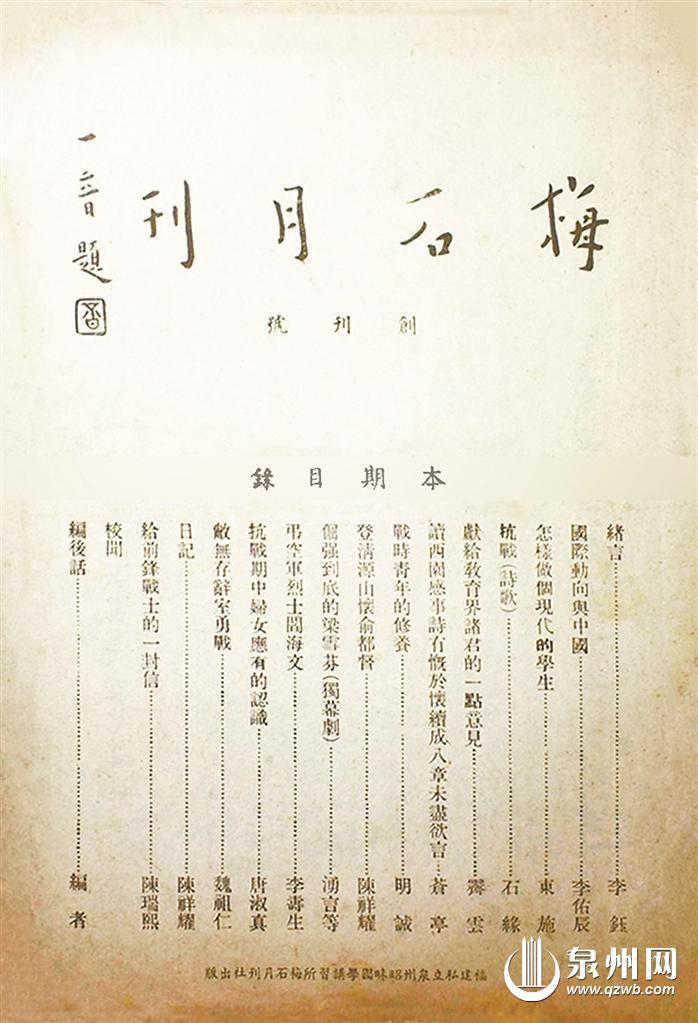 梅石月刊
一音題
創刊號
本期目錄
緒言……李鈺
國際動向與中國……李佑辰
怎樣做個現代的學生……東施
抗戰(詩歌)……石緣
獻給敎育界諸君的一點意見……霽雲
讀西園感事詩有慨於懷續成八章未盡欲言……蒼亭
戰時靑年的修養……明誠
登淸源山懷俞都督……陳祥耀
倔强到底的梁雪芬(獨幕劇)……湧言等
弔空軍烈士閻海文……李壽生
抗戰期中婦女應有的認識……唐淑真
敝無存辭室勇戰……魏祖仁
日記……陳祥耀
給前鋒戰士的一封信……陳瑞熙
校聞
編後話……編者
福建私立泉州昭昧國學講習所梅石月刊社出版
泉州网
www.qzwb.com